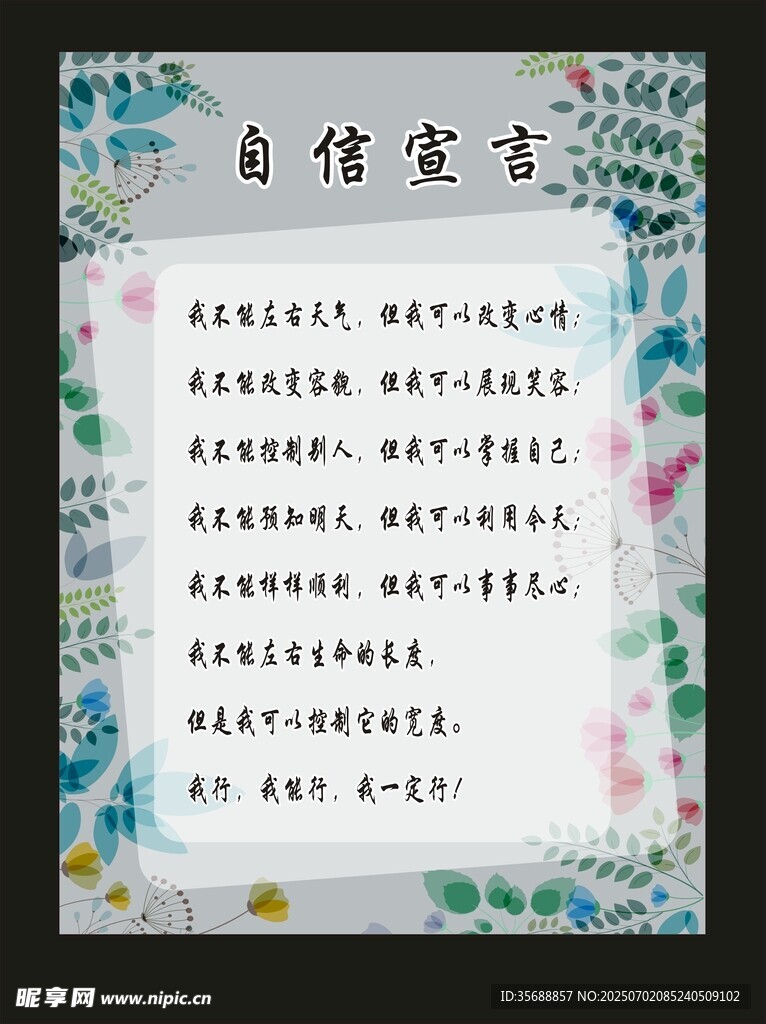 自信宣言
我不能左右天气，但我可以改变心情；
我不能改变容貌，但我可以展现笑容；
我不能控制别人，但我可以掌握自己；
我不能预知明天，但我可以利用今天；
我不能样样顺利，但我可以事事尽心；
我不能左右生命的长度，
但是我可以控制它的宽度。
我行，我能行，我一定行！
昵享网 www.nipic.cn
ID:35688857 NO:20250702085240509102